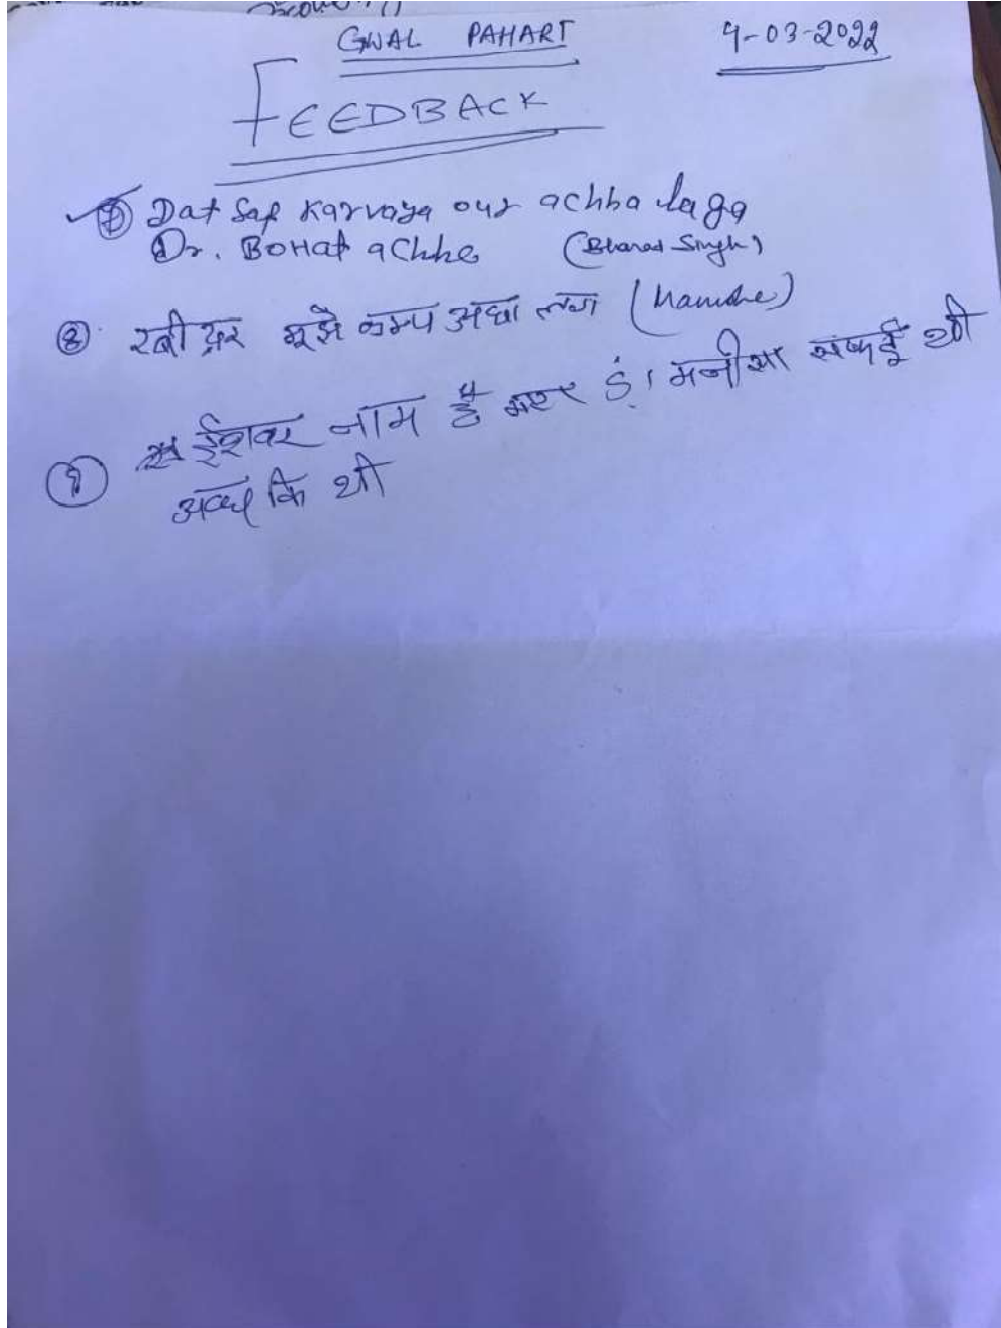 GWAL PAHARI 4-03-2022
FEEDBACK
⑦ Dat Saf Karvaya our achha laga
Dr. BoHat achhe (Bharat Singh)
⑧ मुझे कम्प अछा लगा
⑨ ईशवर नाम है डं। मनीसा सफाई थी
कि थी